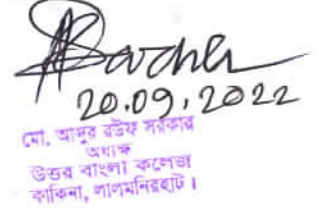 20.09.2022
মো. আব্দুর রউফ সরকার
অধ্যক্ষ
উত্তর বাংলা কলেজ
কাকিনা, লালমনিরহাট।